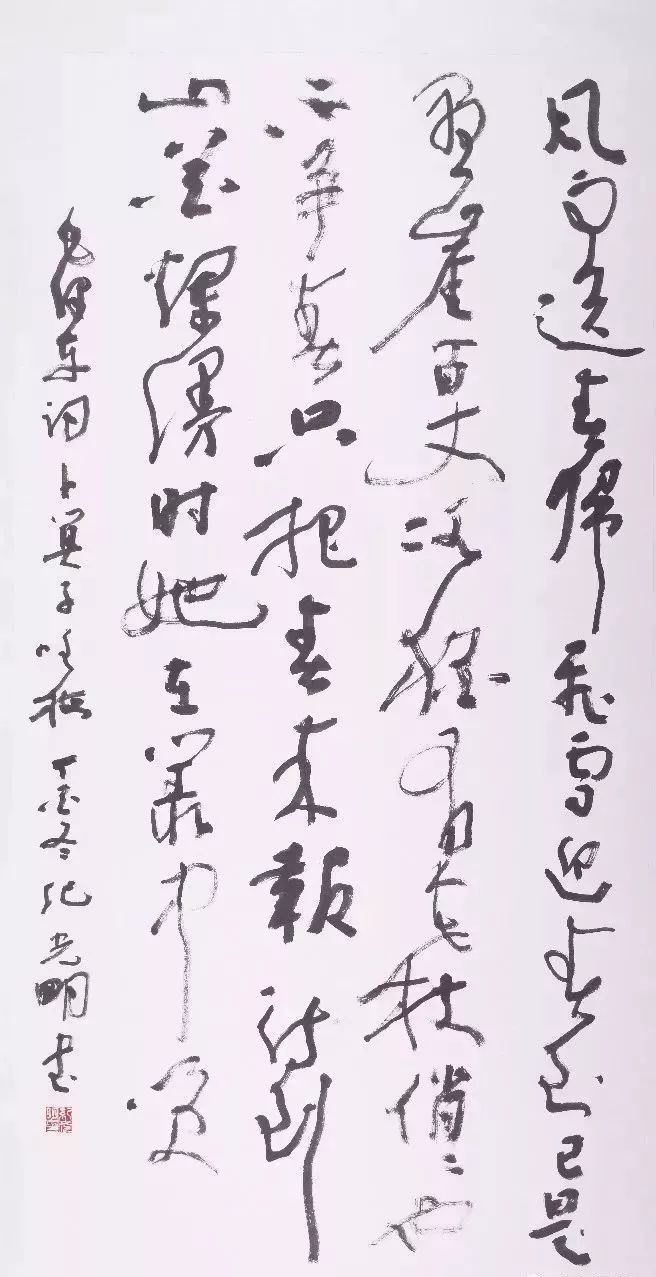 风雨送春歸飛雪迎春到已是
悬崖百丈冰猶有花枝俏〻也
不争春只把春来報待到
山花爛漫时她在叢中笑
毛泽东词卜算子咏梅 丁酉冬纪光明书